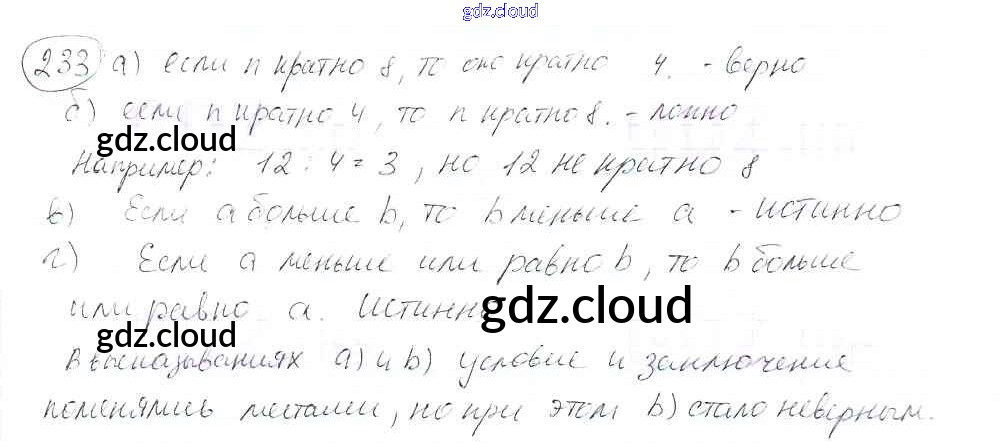 gdz.cloud
233 а) если n кратно 8, то оно кратно 4. - верно
б) если n кратно 4, то n кратно 8. - ложно
gdz.cloud
Например: 12 : 4 = 3, но 12 не кратно 8
в) Если a больше b, то b меньше a - истинно
г) Если a меньше или равно b, то b больше
или равно a. Истинно
gdz.cloud
gdz.cloud
В высказываниях а) и b) условие и заключение
поменялись местами, но при этом b) стало неверным.